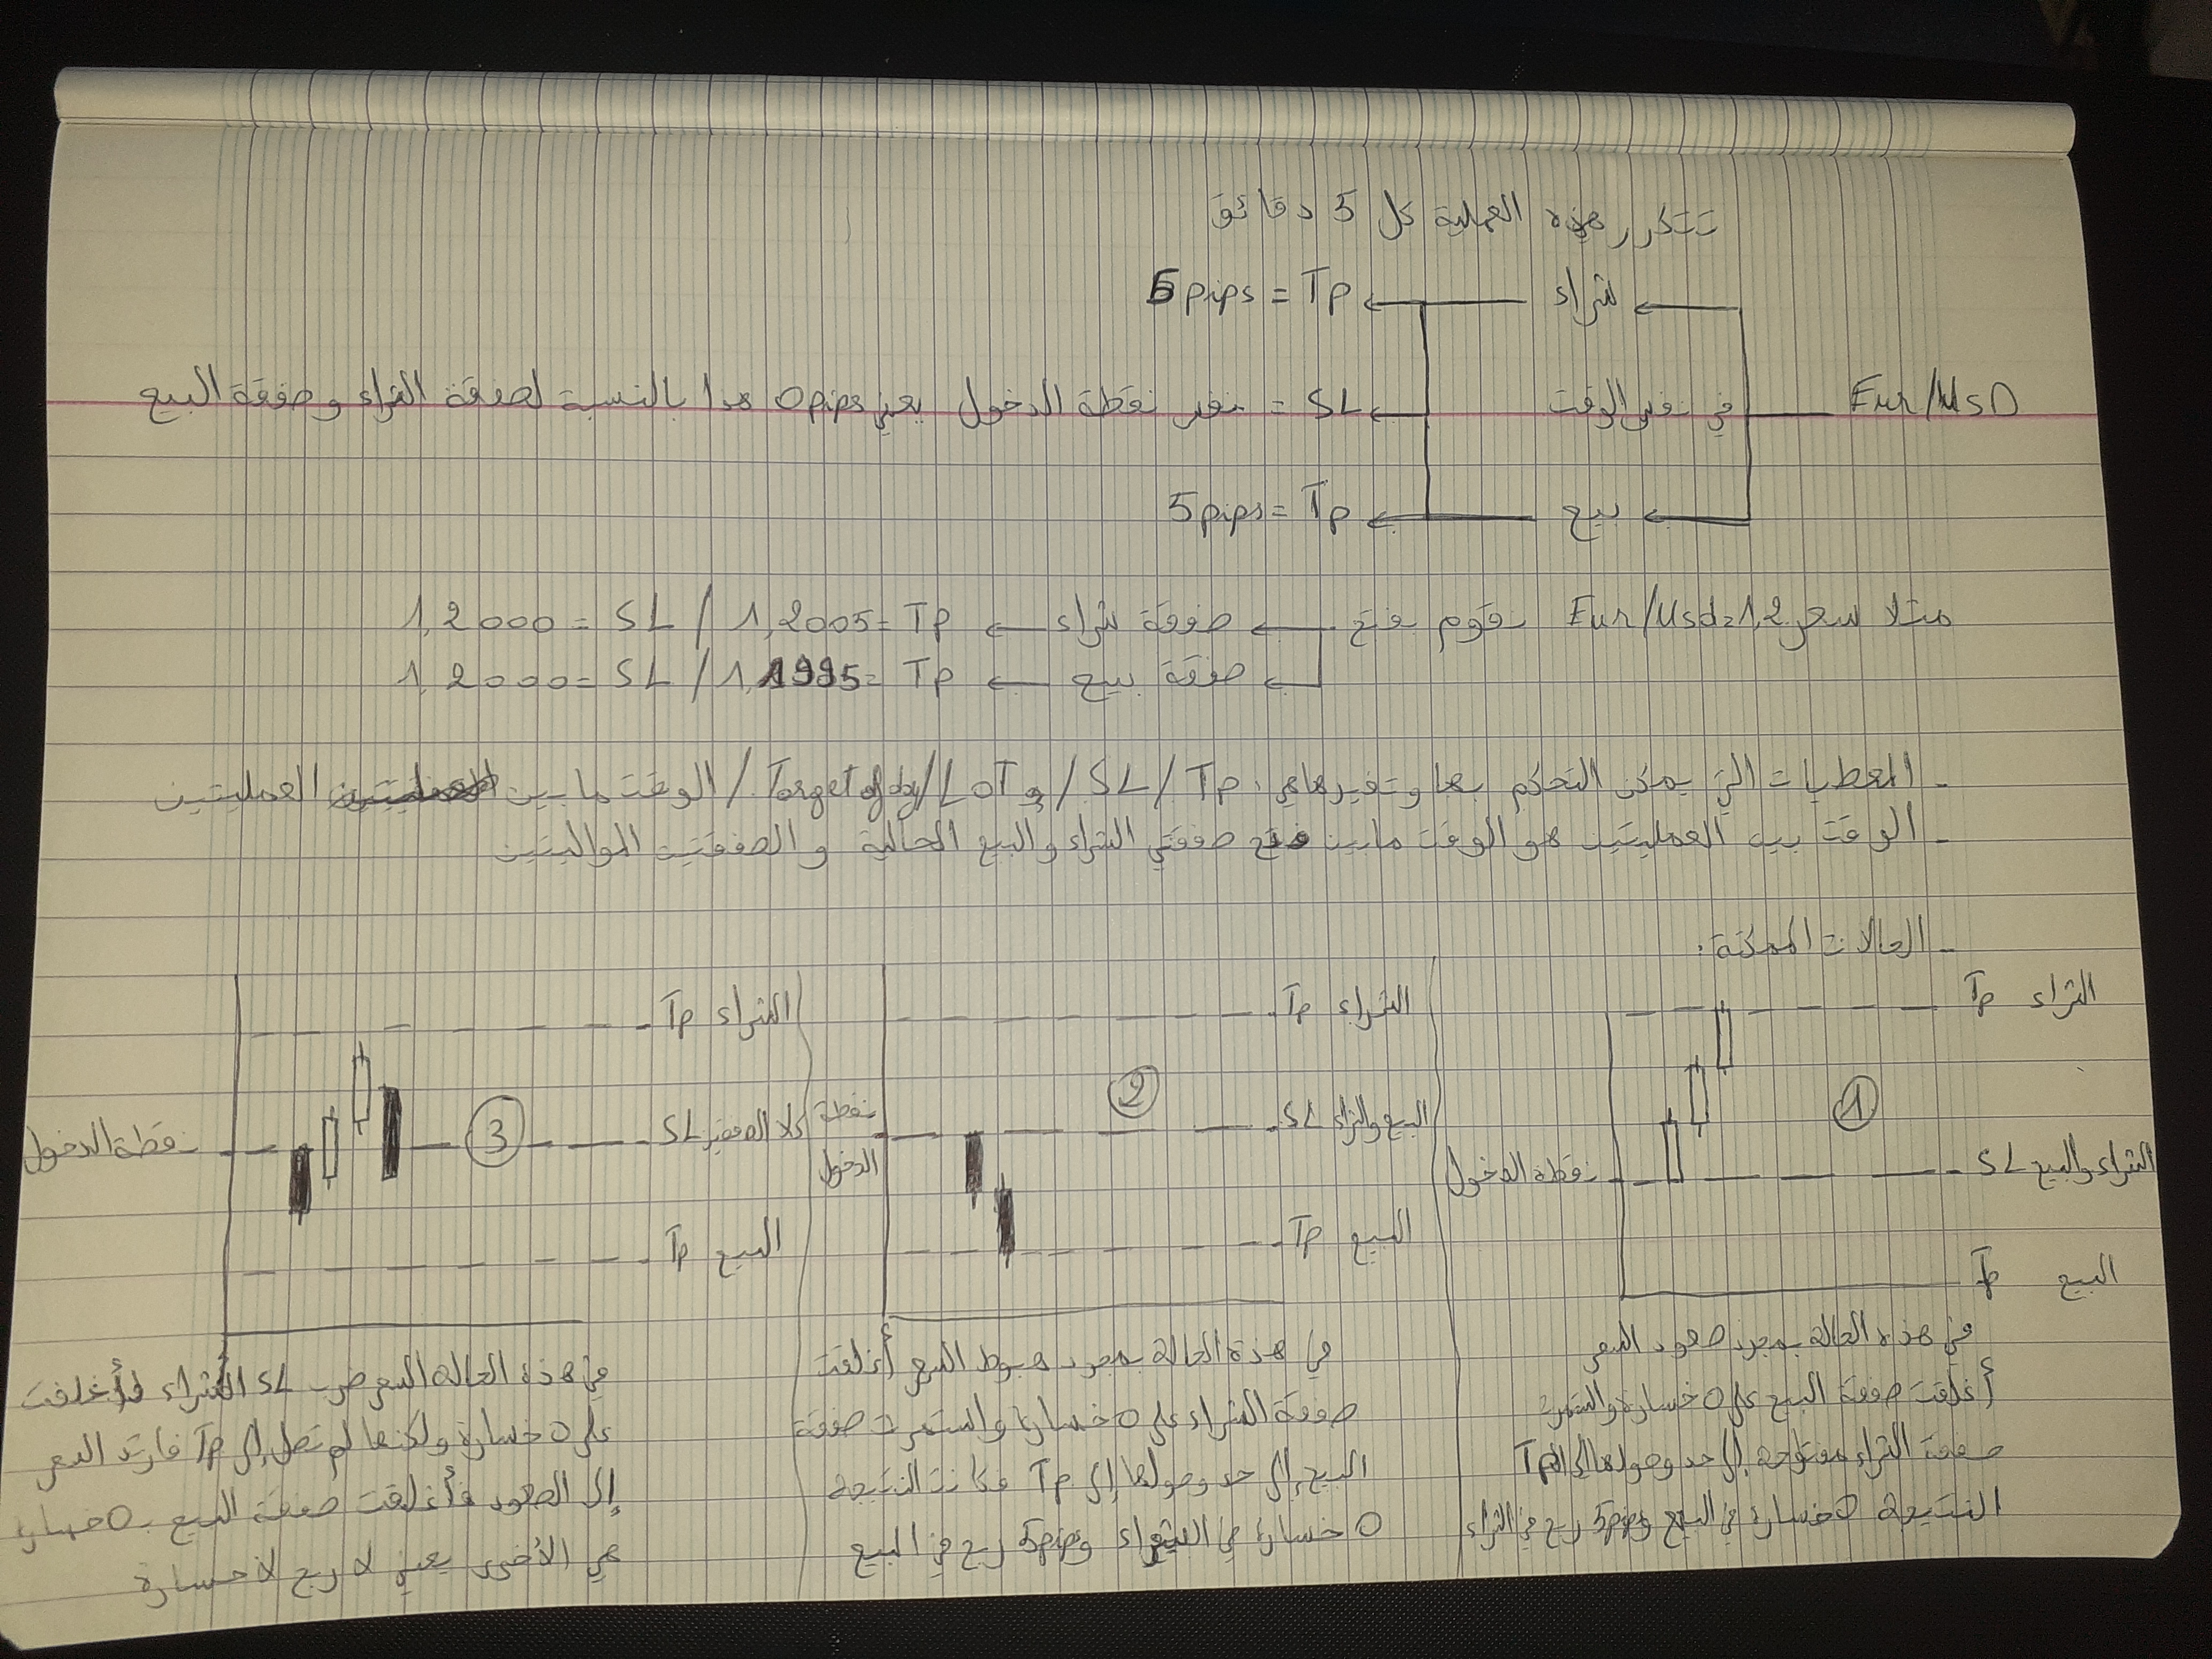 تتكرر هذه العملية كل 5 دقائق
شراء ← Tp = 5pips
Eur/UsD — في نفس الوقت ← SL = نفس نقطة الدخول يعني 0pips هدا بالنسبة لصفقة الشراء و صفقة البيع
بيع ← Tp = 5pips
مثلا سعر Eur/Usd=1,2 نقوم بفتح ← صفقة شراء ← Tp =1,2005 / SL =1,2000
← صفقة بيع ← Tp =1,1995 / SL =1,2000
- المعطيات التي يمكن التحكم بها وتغيرها هي: Tp / SL / و LOT / Target of day / الوقت ما بين العمليتين
- الوقت بين العمليتين هو الوقت مابين فتح صفقتي الشراء والبيع الحالية و الصفقتين المواليتين
- الحالات الممكنة:
الشراء Tp
1
الشراء والبيع SL
نقطة الدخول
البيع Tp
في هذه الحالة بمجرد صعود السعر
أغلقت صفقة البيع على 0 خسارة واستمرت
صفقة الشراء مفتوحة إلى حد وصولها إلى Tp
النتيجة 0 خسارة في البيع و 5pips ربح في الشراء
الشراء Tp
2
البيع والشراء SL
نقطة
الدخول
البيع Tp
في هذة الحالة بمجرد هبوط السعر أغلقت
صفقة الشراء على 0 خسارة واستمرت صفقة
البيع إلى حد وصولها إلى Tp فكانت النتيجة
0 خسارة في الشراء و 5pips ربح في البيع
الشراء Tp
3
كلا الصفقتين SL
نقطة الدخول
البيع Tp
في هذة الحالة السعر ضرب SL الشراء وأغلقت
على 0 خسارة ولكنها لم تصل إلى Tp فارتد السعر
إلى الصعود فأغلقت صفقة البيع ب 0 خسارة
هي الأخرى يعني لا ربح لا خسارة